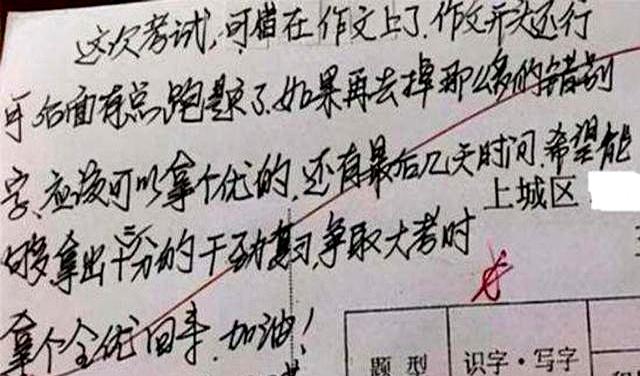 这次考试,可惜在作文上了.作文开头还行
可后面有点跑题了.如果再去掉那么多的错别
字、应该可以拿个优的.还有最后几天时间.希望能
够拿出十二分的干劲复习,争取大考时
上城区
拿个全优回来.加油!
题型 识字·写字